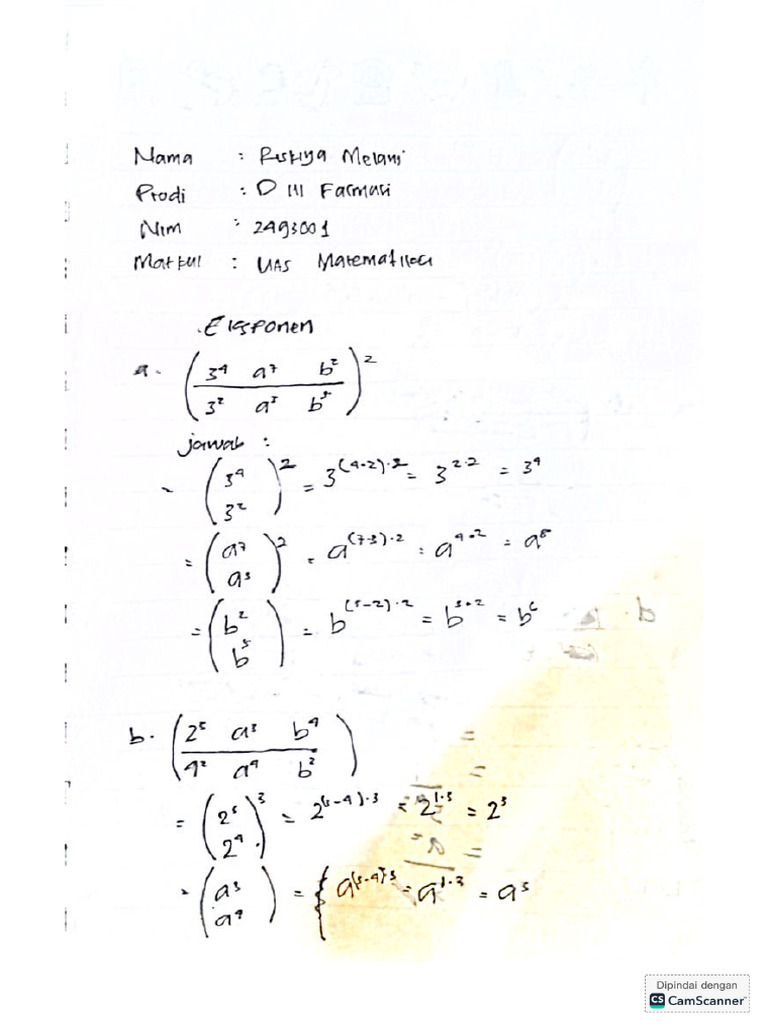 Nama : Riskiya Melani
Prodi : D III Farmasi
Nim : 2493001
Matkul : UAS Matematika
Eksponen
a. (3⁴ a⁷ b² / 3² a³ b⁵)²
jawab :
= (3⁴ / 3²)² = 3^(4-2)·2 = 3^2·2 = 3⁴
= (a⁷ / a³)² = a^(7-3)·2 = a^4·2 = a⁸
= (b² / b⁵) = b^(5-2)·2 = b^3·2 = b⁶
b. (2⁵ a³ b⁴ / 4² a⁴ b²)
= (2⁵ / 2⁴)³ = 2^(5-4)·3 = 2^1·3 = 2³
= (a³ / a⁴) = a^(3-4)·3 = a^1·3 = a³
Dipindai dengan
CS CamScanner